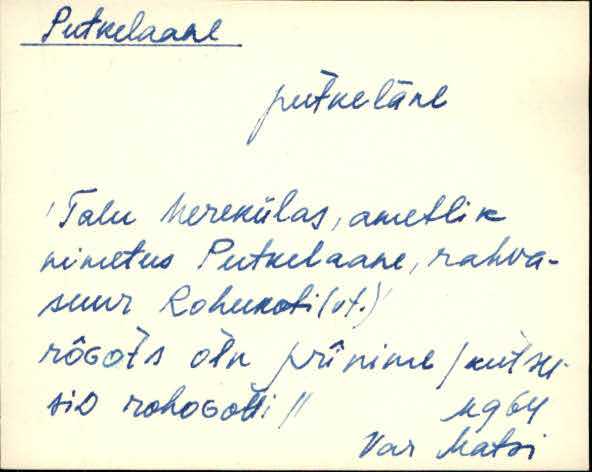 Putkelaane
putkelāne
'Talu Merekülas, ametlik
nimetus Putkelaane, rahva-
suur Rohukoti (vt.)'
rôGoťs õln prīnime / kutsu-
siD rohoGoťti //
KG 64
Var Matsi